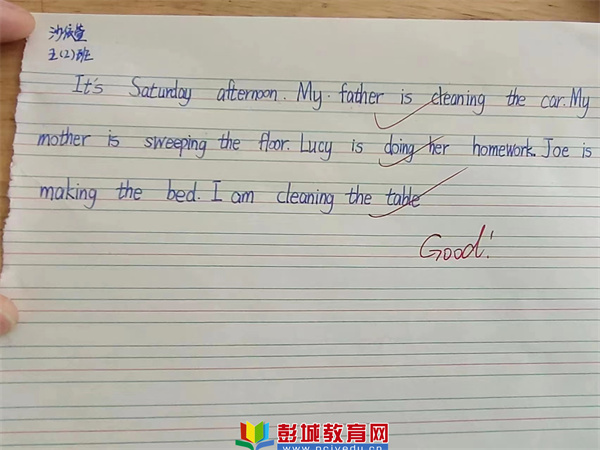 沙依萱
五(2)班
It's Saturday afternoon. My father is cleaning the car. My
mother is sweeping the floor. Lucy is doing her homework. Joe is
making the bed. I am cleaning the table
Good!
彭城教育网
www.pcjyedu.cn